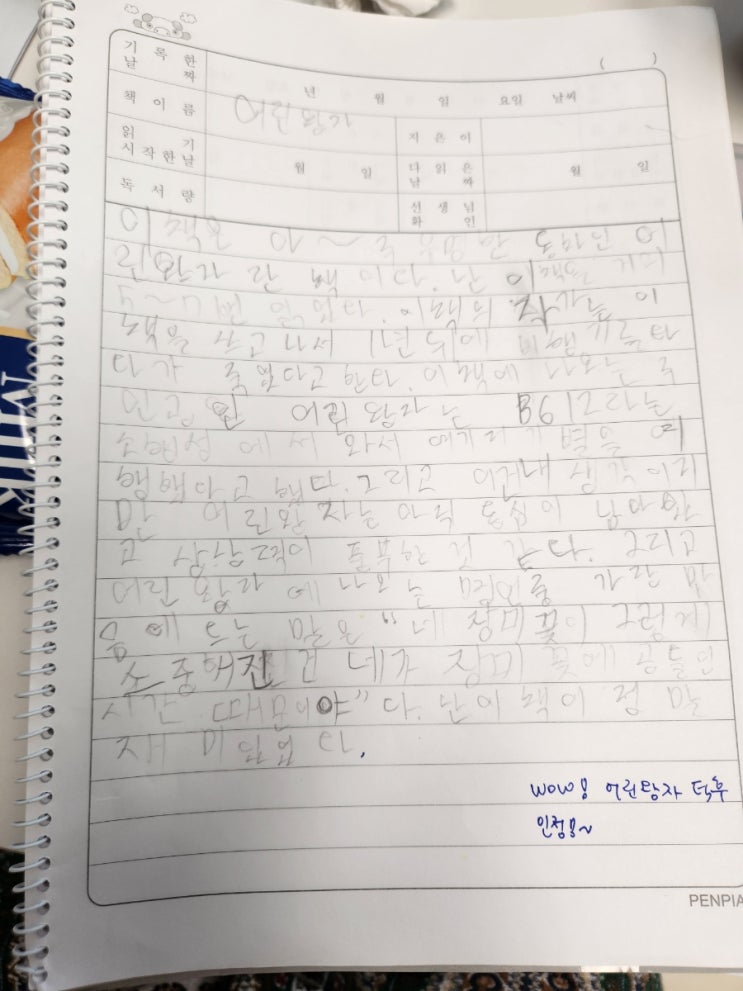 ( )
기 록 한 날 짜 년 월 일 요일 날씨
책 이 름 어린왕자 지 은 이
읽 기 시 작 한 날 월 일 다 읽 은 날 짜 월 일
독 서 량 선 생 님 확 인
이 책은 아~주 유명한 동화인 어
린왕자 란 책 이다. 난 이책을
5~ 번 읽었다. 이책의 작가는 이
책을 쓰고 나서 1년 뒤에 비행기를 타
다가 죽었다고 한다. 이 책에 나오는 주
인공 인 어린 왕자 는 B612라는
소행성 에서 와서 여러 가지 별을 여
행했다고 했다. 그리고 이건 내 생각 이지
만 어린왕자는 아직 동심이 남아있
고 상상력이 풍부한 것 같다. 그리고
어린 왕자 에 나오는 명언중 가장 마
음 에 드는 말은 "네 장미꽃이 그렇게
소중해진 건 네가 장미 꽃에 공들인
시간 때문이야" 다. 난 이 책이 정말
재미있었다.
wow! 어린왕자 덕후
인정!~
PENPIA
Milk